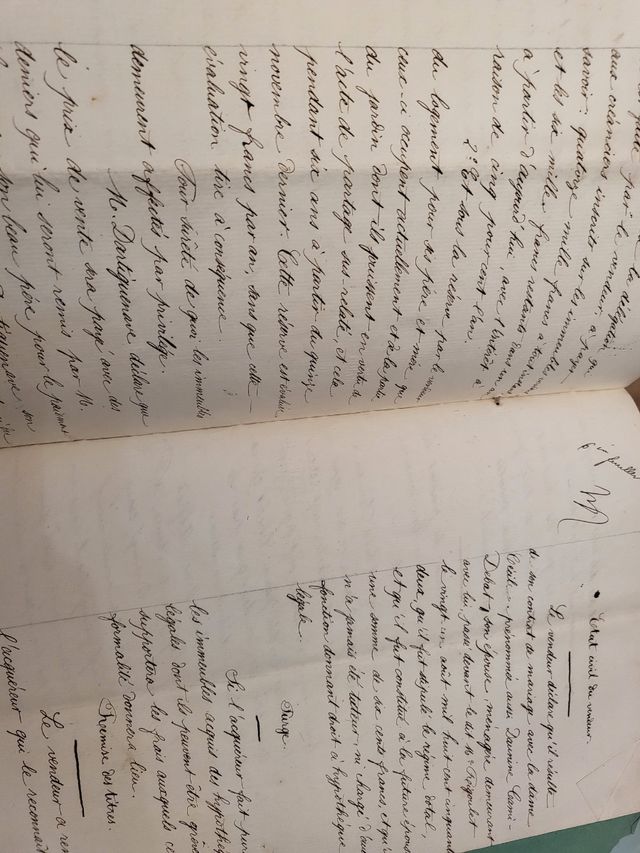 aux créanciers inscrits sur les immeubles
savoir: quatorze mille francs
et les six mille francs restants dans
à partir d'aujourd'hui, avec l'intérêt à
raison de cinq pour cent l'an.
2° Et sous la réserve par le vendeur
du logement pour ses père et mère que
ceux-ci occupent actuellement et de la partie
du jardin dont ils jouissent en vertu de
l'acte de partage sus-relaté, et cela
pendant six ans à partir du quinze
novembre dernier. Cette réserve est évaluée
vingt francs par an, sans que cette
évaluation tire à conséquence.
Pour sûreté de quoi les immeubles
demeurent affectés par privilège.
M. Dartiguenave déclare que
le prix de vente sera payé avec des
deniers qui lui seront remis par M.
son beau père, pour le
6e feuillet
État civil du vendeur.
Le vendeur déclare qu'il résulte
de son contrat de mariage avec la dame
Cécile, prénommée aussi Jeannine Cami-
Debat, son épouse, ménagère demeurant
avec lui, passé devant le dit Me
le vingt un août mil huit cent cinquante
deux, qu'il fut stipulé le régime dotal
et qu'il fut constitué à la future épouse
une somme de six cents francs, et qu'il
n'a jamais été tuteur, ni chargé d'une
fonction donnant droit à hypothèque
légale.
Purge.
Si l'acquéreur fait purger
les immeubles acquis des hypothèques
légales dont ils peuvent être
supportera les frais auxquels cette
formalité donnera lieu.
Remise des titres.
Le vendeur a
l'acquéreur qui le reconnaît